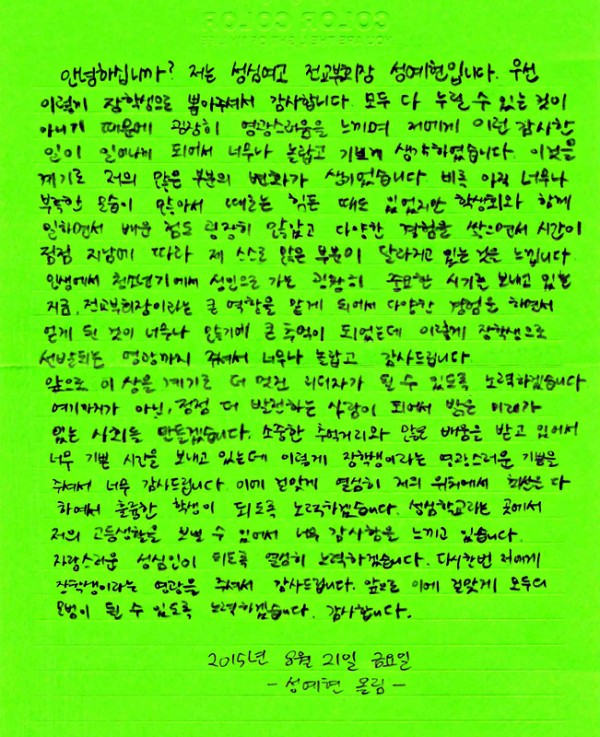 COLOR COLOR
안녕하십니까? 저는 성심여고 전교부회장 성예현입니다. 우선
이렇게 장학생으로 뽑아주셔서 감사합니다. 모두 다 누릴 수 있는 것이
아니기 때문에 굉장히 영광스러움을 느끼며 저에게 이런 감사한
일이 일어나게 되어서 너무나 놀랍고 기쁘게 생각하였습니다. 이것을
계기로 저의 많은 부분의 변화가 생기었습니다. 비록 아직 너무나
부족한 모습이 많아서 때로는 힘든 때도 있었지만 학생회와 함께
일하면서 배운 점도 굉장히 많았고 다양한 경험을 쌓으면서 시간이
점점 지남에 따라 제 스스로 많은 부분이 달라지고 있는 것은 느낍니다.
인생에서 청소년기에서 성인으로 가는 굉장히 중요한 시기를 보내고 있는
지금, 전교부회장이라는 큰 역할을 맡게 되어서 다양한 경험을 하면서
얻게 된 것이 너무나 많기에 큰 추억이 되었는데 이렇게 장학생으로
선발되는 영광까지 주셔서 너무나 놀랍고 감사드립니다.
앞으로 이 상을 계기로 더 멋진 리더자가 될 수 있도록 노력하겠습니다
여기까지가 아닌, 점점 더 발전하는 사람이 되어서 밝은 미래가
있는 사회를 만들겠습니다. 소중한 추억거리와 많은 배움을 받고 있어서
너무 기쁜 시간을 보내고 있는데 이렇게 장학생이라는 영광스러운 기쁨을
주셔서 너무 감사드립니다. 이에 걸맞게 열심히 저의 위치에서 최선을 다
하여서 훌륭한 학생이 되도록 노력하겠습니다. 성심학교라는 곳에서
저의 고등생활을 보낼 수 있어서 너무 감사함을 느끼고 있습니다.
자랑스러운 성심인이 되도록 열심히 노력하겠습니다. 다시한번 저에게
장학생이라는 영광을 주셔서 감사드립니다. 앞으로 이에 걸맞게 모두의
모범이 될 수 있도록 노력하겠습니다. 감사합니다.
2015년 8월 21일 금요일
- 성예현 올림 -